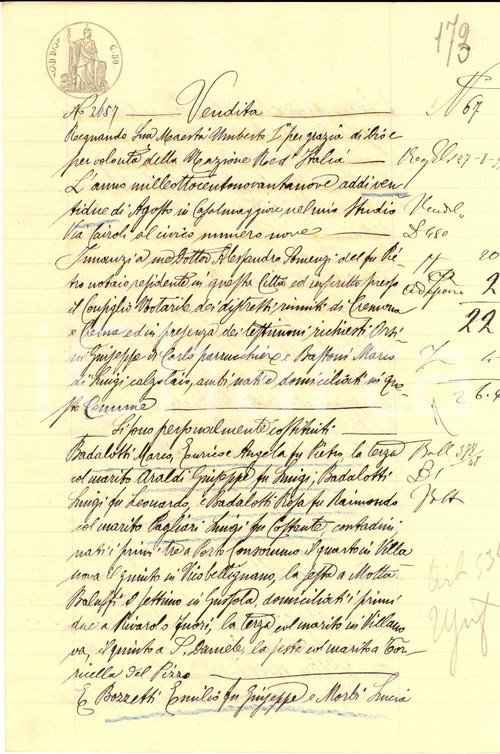 173
No 2657 Vendita
N 67
Regnando Sua Maestà Umberto Io per grazia di Dio e
per volontà della Nazione Re d'Italia
L'anno milleottocentonovantanove addì ven
tidue di Agosto in Casalmaggiore nel mio Studio
Via Cairoli al civico numero nove
480
Innanzi a me Dottor Alessandro Lomenzi del fu Pie
20
tro notaio residente in questa Città ed inscritto presso
2
il Consiglio Notarile dei distretti riuniti di Cremona
22
e Crema ed in presenza dei testimoni richiesti Orsi
ni Giuseppe di Carlo parrucchiere e Bastoni Marco
di Luigi calzolaio, ambi nati e domiciliati in que
sto Comune
26.4
Si sono personalmente costituiti
Badalotti Marco, Enrico e Angela fu Pietro, la terza
col marito Araldi Giuseppe fu Luigi, Badalotti
Luigi fu Leonardo, e Badalotti Rosa fu Raimondo
col marito Pagliari Luigi fu Costante contadini
nati i primi tre a Porto Consommo il quarto in Villa
nova il quinto in Vicobellignano, la sesta a Motta
Baluffi il settimo in Gussola, domiciliati i primi
due a Rivarolo fuori, la terza col marito in Villano
va, il quinto a S. Daniele, la sesta col marito a Tor
ricella del Pizzo
E Bozzetti Emilio fu Giuseppe e Morbi Lucia